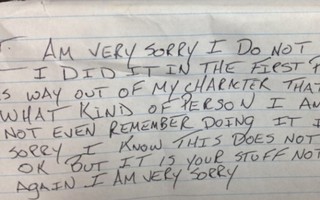 I. AM VERY SORRY I DO NOT
I DID IT IN THE FIRST
S WAY OUT OF MY CHARICTER THAT
WHAT KIND OF PERSON I AM
NOT EVEN REMEMBER DOING IT I
SORRY I KNOW THIS DOES NOT
OK BUT IT IS YOUR STUFF NOT
AGAIN I AM VERY SORRY